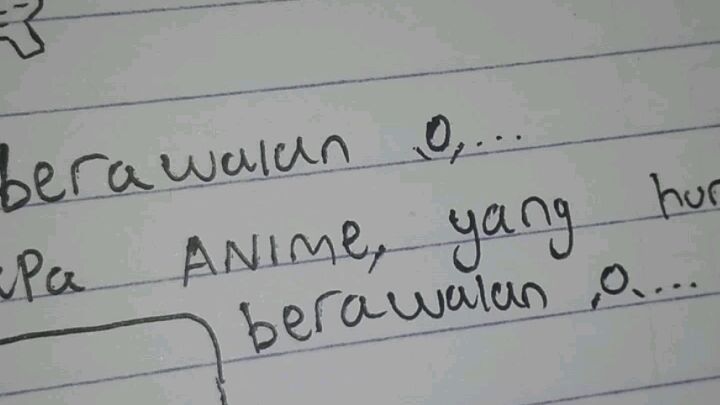 berawalan ,O,...
apa ANIME, yang hur
berawalan ,O,....